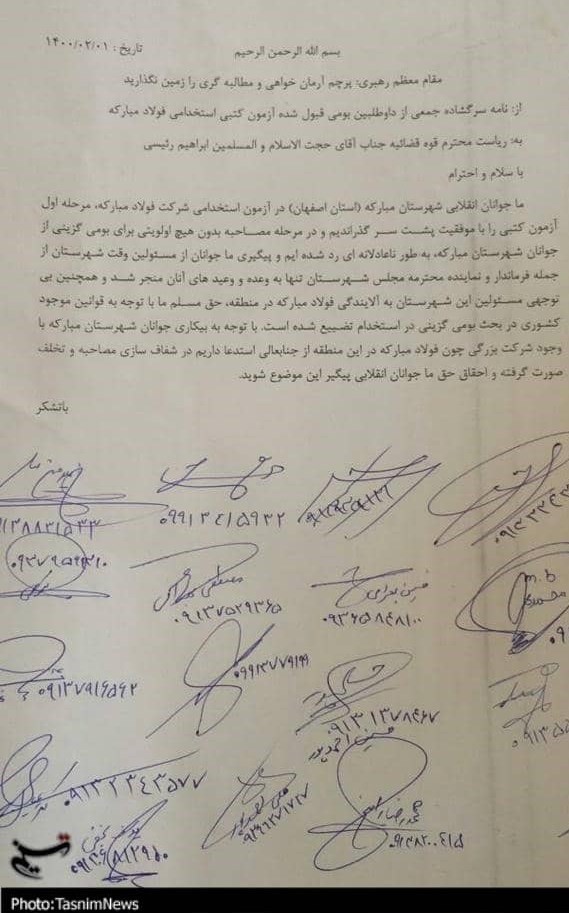 بسم الله الرحمن الرحیم
تاریخ : ۱۴۰۰/۰۲/۰۱
مقام معظم رهبری: پرچم آرمان خواهی و مطالبه گری را زمین نگذارید
از: نامه سرگشاده جمعی از داوطلبین بومی قبول شده آزمون کتبی استخدامی فولاد مبارکه
به: ریاست محترم قوه قضائیه جناب آقای حجت الاسلام و المسلمین ابراهیم رئیسی
با سلام و احترام
ما جوانان انقلابی شهرستان مبارکه (استان اصفهان) در آزمون استخدامی شرکت فولاد مبارکه، مرحله اول
آزمون کتبی را با موفقیت پشت سر گذراندیم و در مرحله مصاحبه بدون هیچ اولویتی برای بومی گزینی از
جوانان شهرستان مبارکه، به طور ناعادلانه ای رد شده ایم و پیگیری ما جوانان از مسئولین وقت شهرستان از
جمله فرماندار و نماینده محترمه مجلس شهرستان تنها به وعده و وعید های آنان منجر شد و همچنین بی
توجهی مسئولین این شهرستان به آلایندگی فولاد مبارکه در منطقه، حق مسلم ما با توجه به قوانین موجود
کشوری در بحث بومی گزینی در استخدام تضییع شده است. با توجه به بیکاری جوانان شهرستان مبارکه با
وجود شرکت بزرگی چون فولاد مبارکه در این منطقه از جنابعالی استدعا داریم در شفاف سازی مصاحبه و تخلف
صورت گرفته و احقاق حق ما جوانان انقلابی پیگیر این موضوع شوید.
باتشکر
۰۹۹۱۳۴۱۵۹۳۲
m.b
محمدی
۰۹۳۶۵۸۴۸۱۰۰
۰۹۱۳۷۵۲۹۳۶۵
۰۹۹۱۳۷۷۹۱۹۹
۰۹۱۳۷۹۱۶۵۶۲
۰۹۱۳۱۳۷۸۴۶۷
حسین احمدپور
۰۹۱۳۲۳۴۳۵۷۷
محمدرضا
۰۹۱۳۸۲۰۰۴۱۵
تسنیم
Photo:TasnimNews